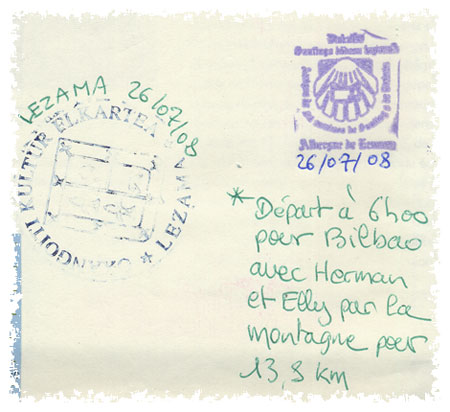 LEZAMA 26/07/08
KULTUR ELKARTEA
* LEZAMA
Albergue de Lezama
26/07/08
* Départ à 6h00
pour Bilbao
avec Herman
et Elly par la
montagne pour
13,8 km